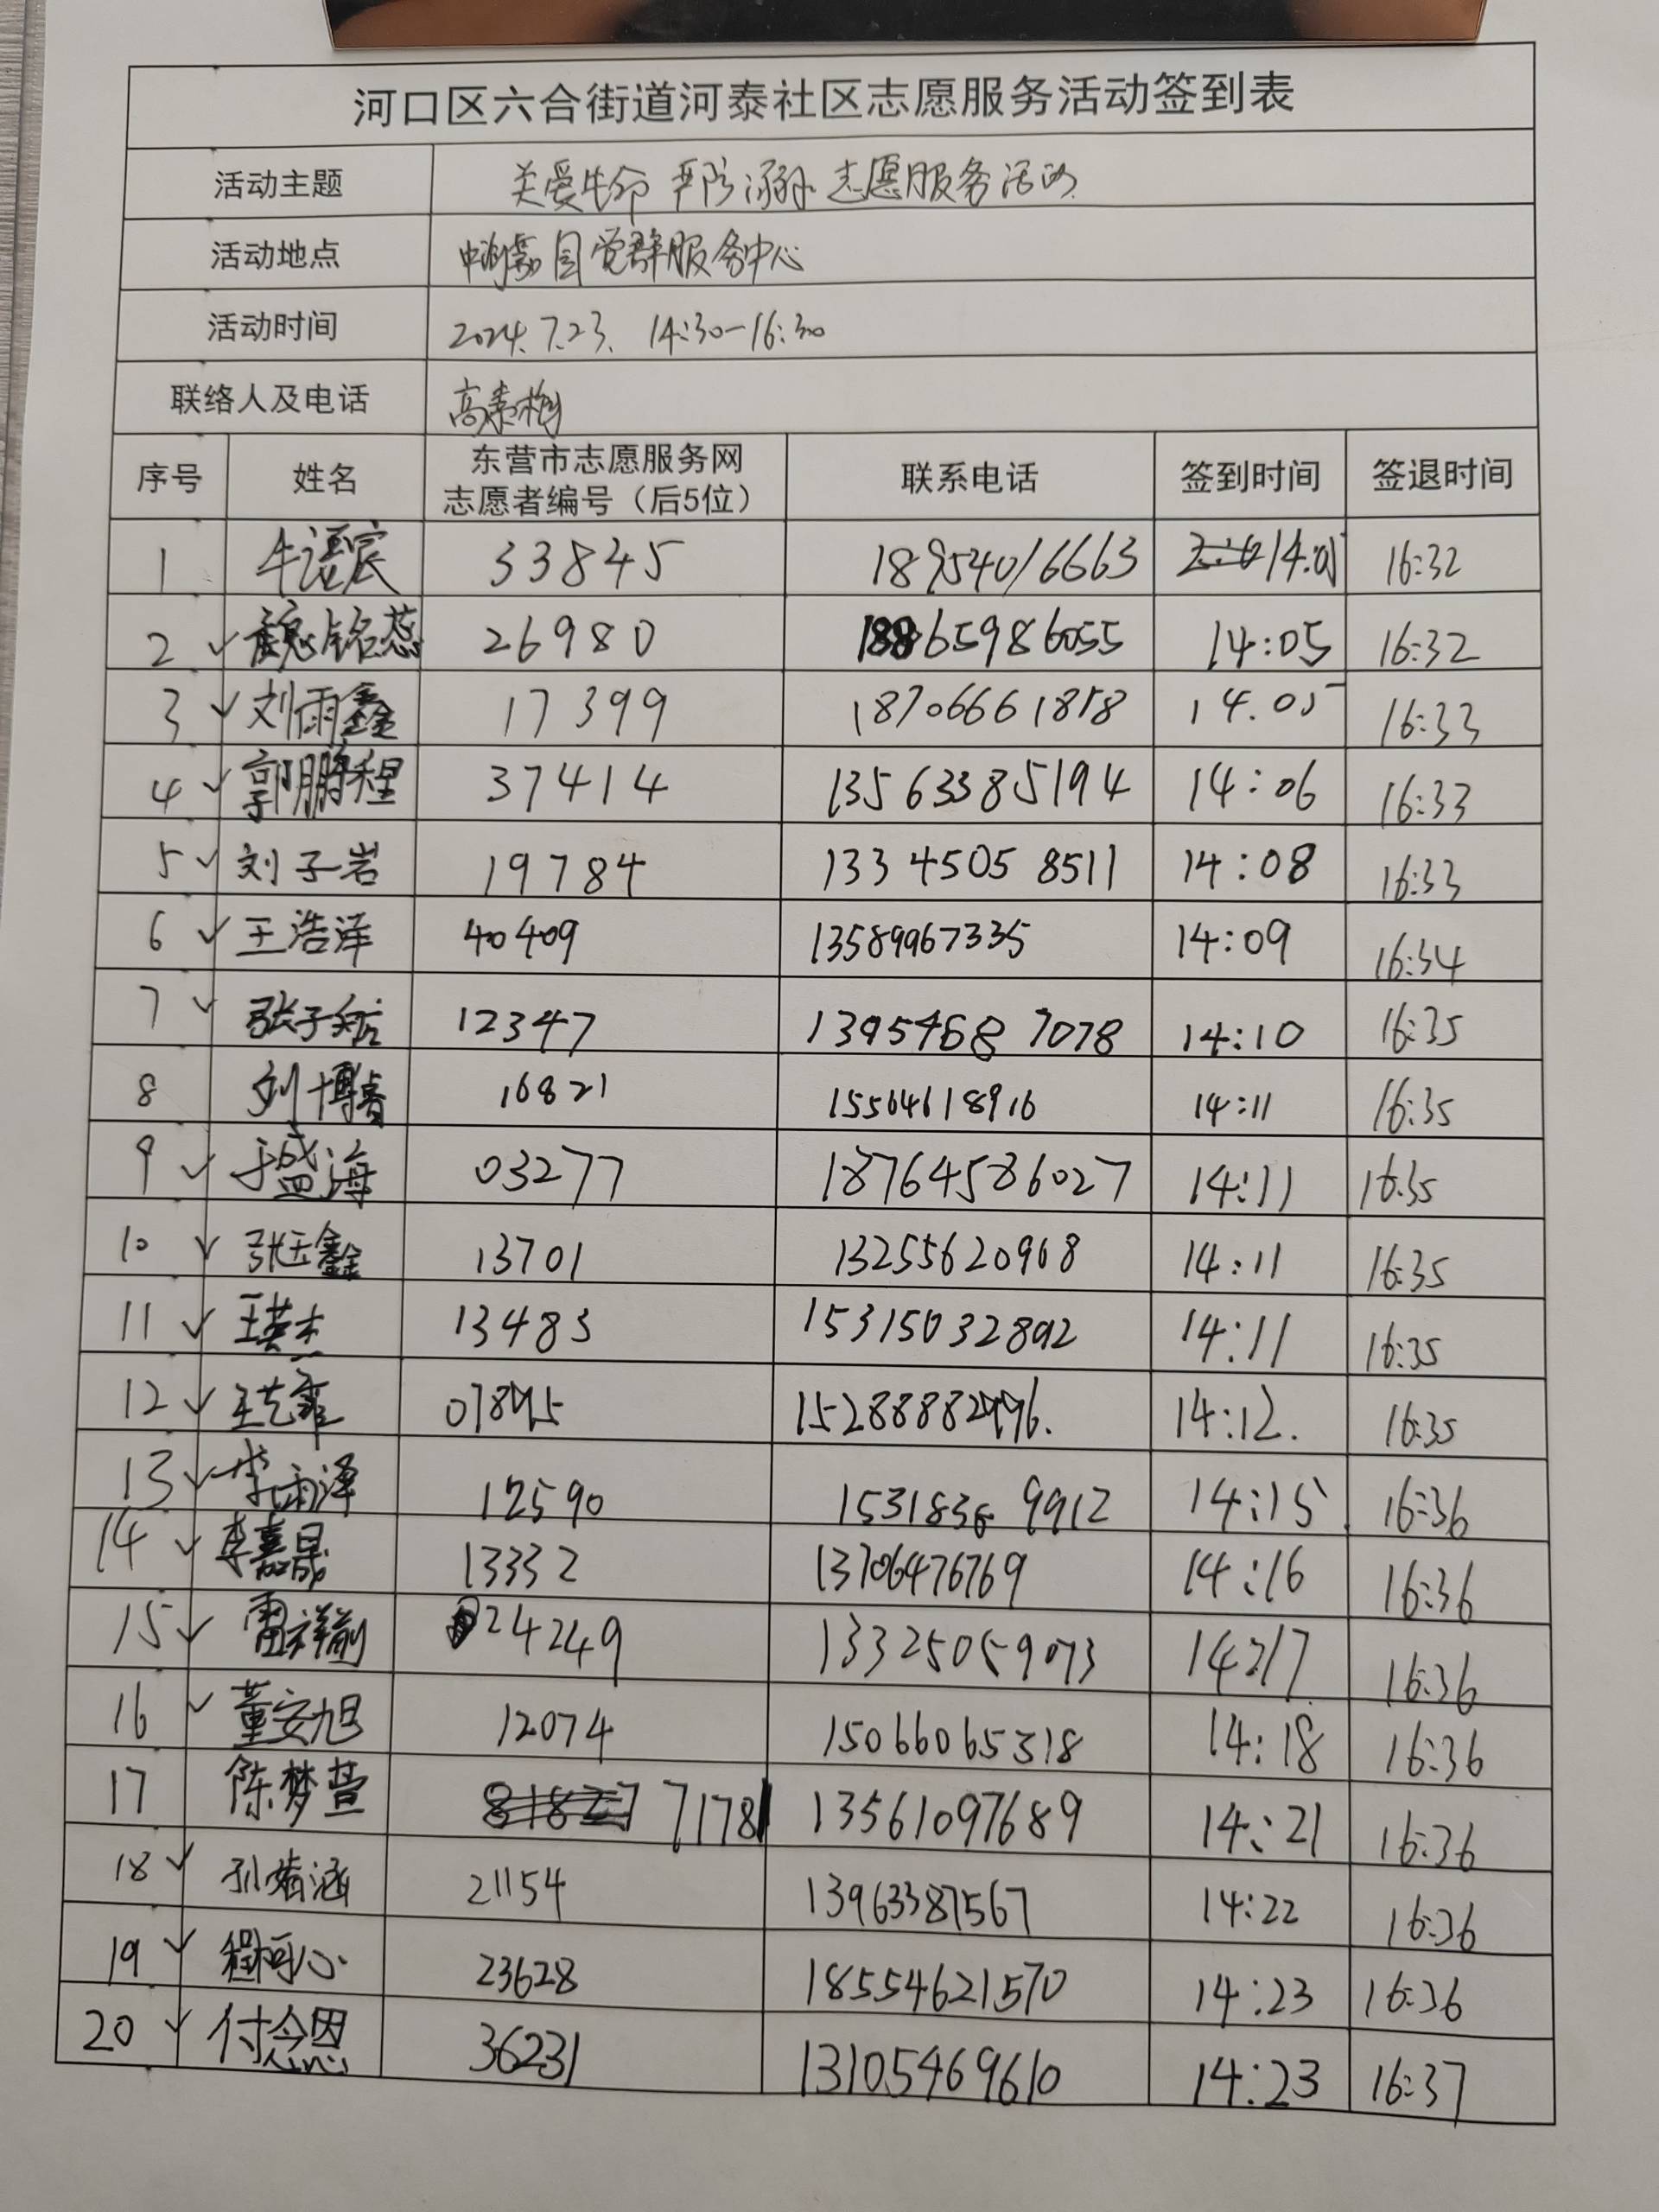 河口区六合街道河泰社区志愿服务活动签到表
活动主题 关爱生命 严防溺水 志愿服务活动
活动地点 党群服务中心
活动时间 2024.7.23. 14:30-16:30
联络人及电话 高素梅
序号 姓名 东营市志愿服务网 志愿者编号（后5位） 联系电话 签到时间 签退时间
1 牛语宸 33845 18954016663 14:05 16:32
2 ✓ 魏铭蕊 26980 18865986055 14:05 16:32
3 ✓ 刘雨鑫 17399 18706661818 14.05 16:33
4 ✓ 郭鹏程 37414 13563385194 14:06 16:33
5 ✓ 刘子岩 19784 133 4505 8511 14:08 16:33
6 ✓ 王浩泽 40409 13589967335 14:09 16:34
7 ✓ 张子 12347 1395468 7078 14:10 16:35
8 刘博睿 16821 15564618916 14:11 16:35
9 ✓ 于盛海 03277 18764586027 14:11 16:35
10 ✓ 张玉鑫 13701 13255620968 14:11 16:35
11 ✓ 王英杰 13483 15315032892 14:11 16:35
12 ✓ 王艺霏 14:12. 16:35
13 ✓ 李雨泽 12590 1531836 9912 14:15 16:36
14 ✓ 李嘉晟 13332 13706476769 14:16 16:36
15 ✓ 雷祥瑜 24249 13325059073 14:17 16:36
16 ✓ 董安旭 12074 15066065318 14:18 16:36
17 陈梦萱 71781 13561097689 14:21 16:36
18 ✓ 孙婧涵 21154 13963387567 14:22 16:36
19 ✓ 程可心 23628 18554621570 14:23 16:36
20 ✓ 付念恩 36231 13105469610 14:23 16:37